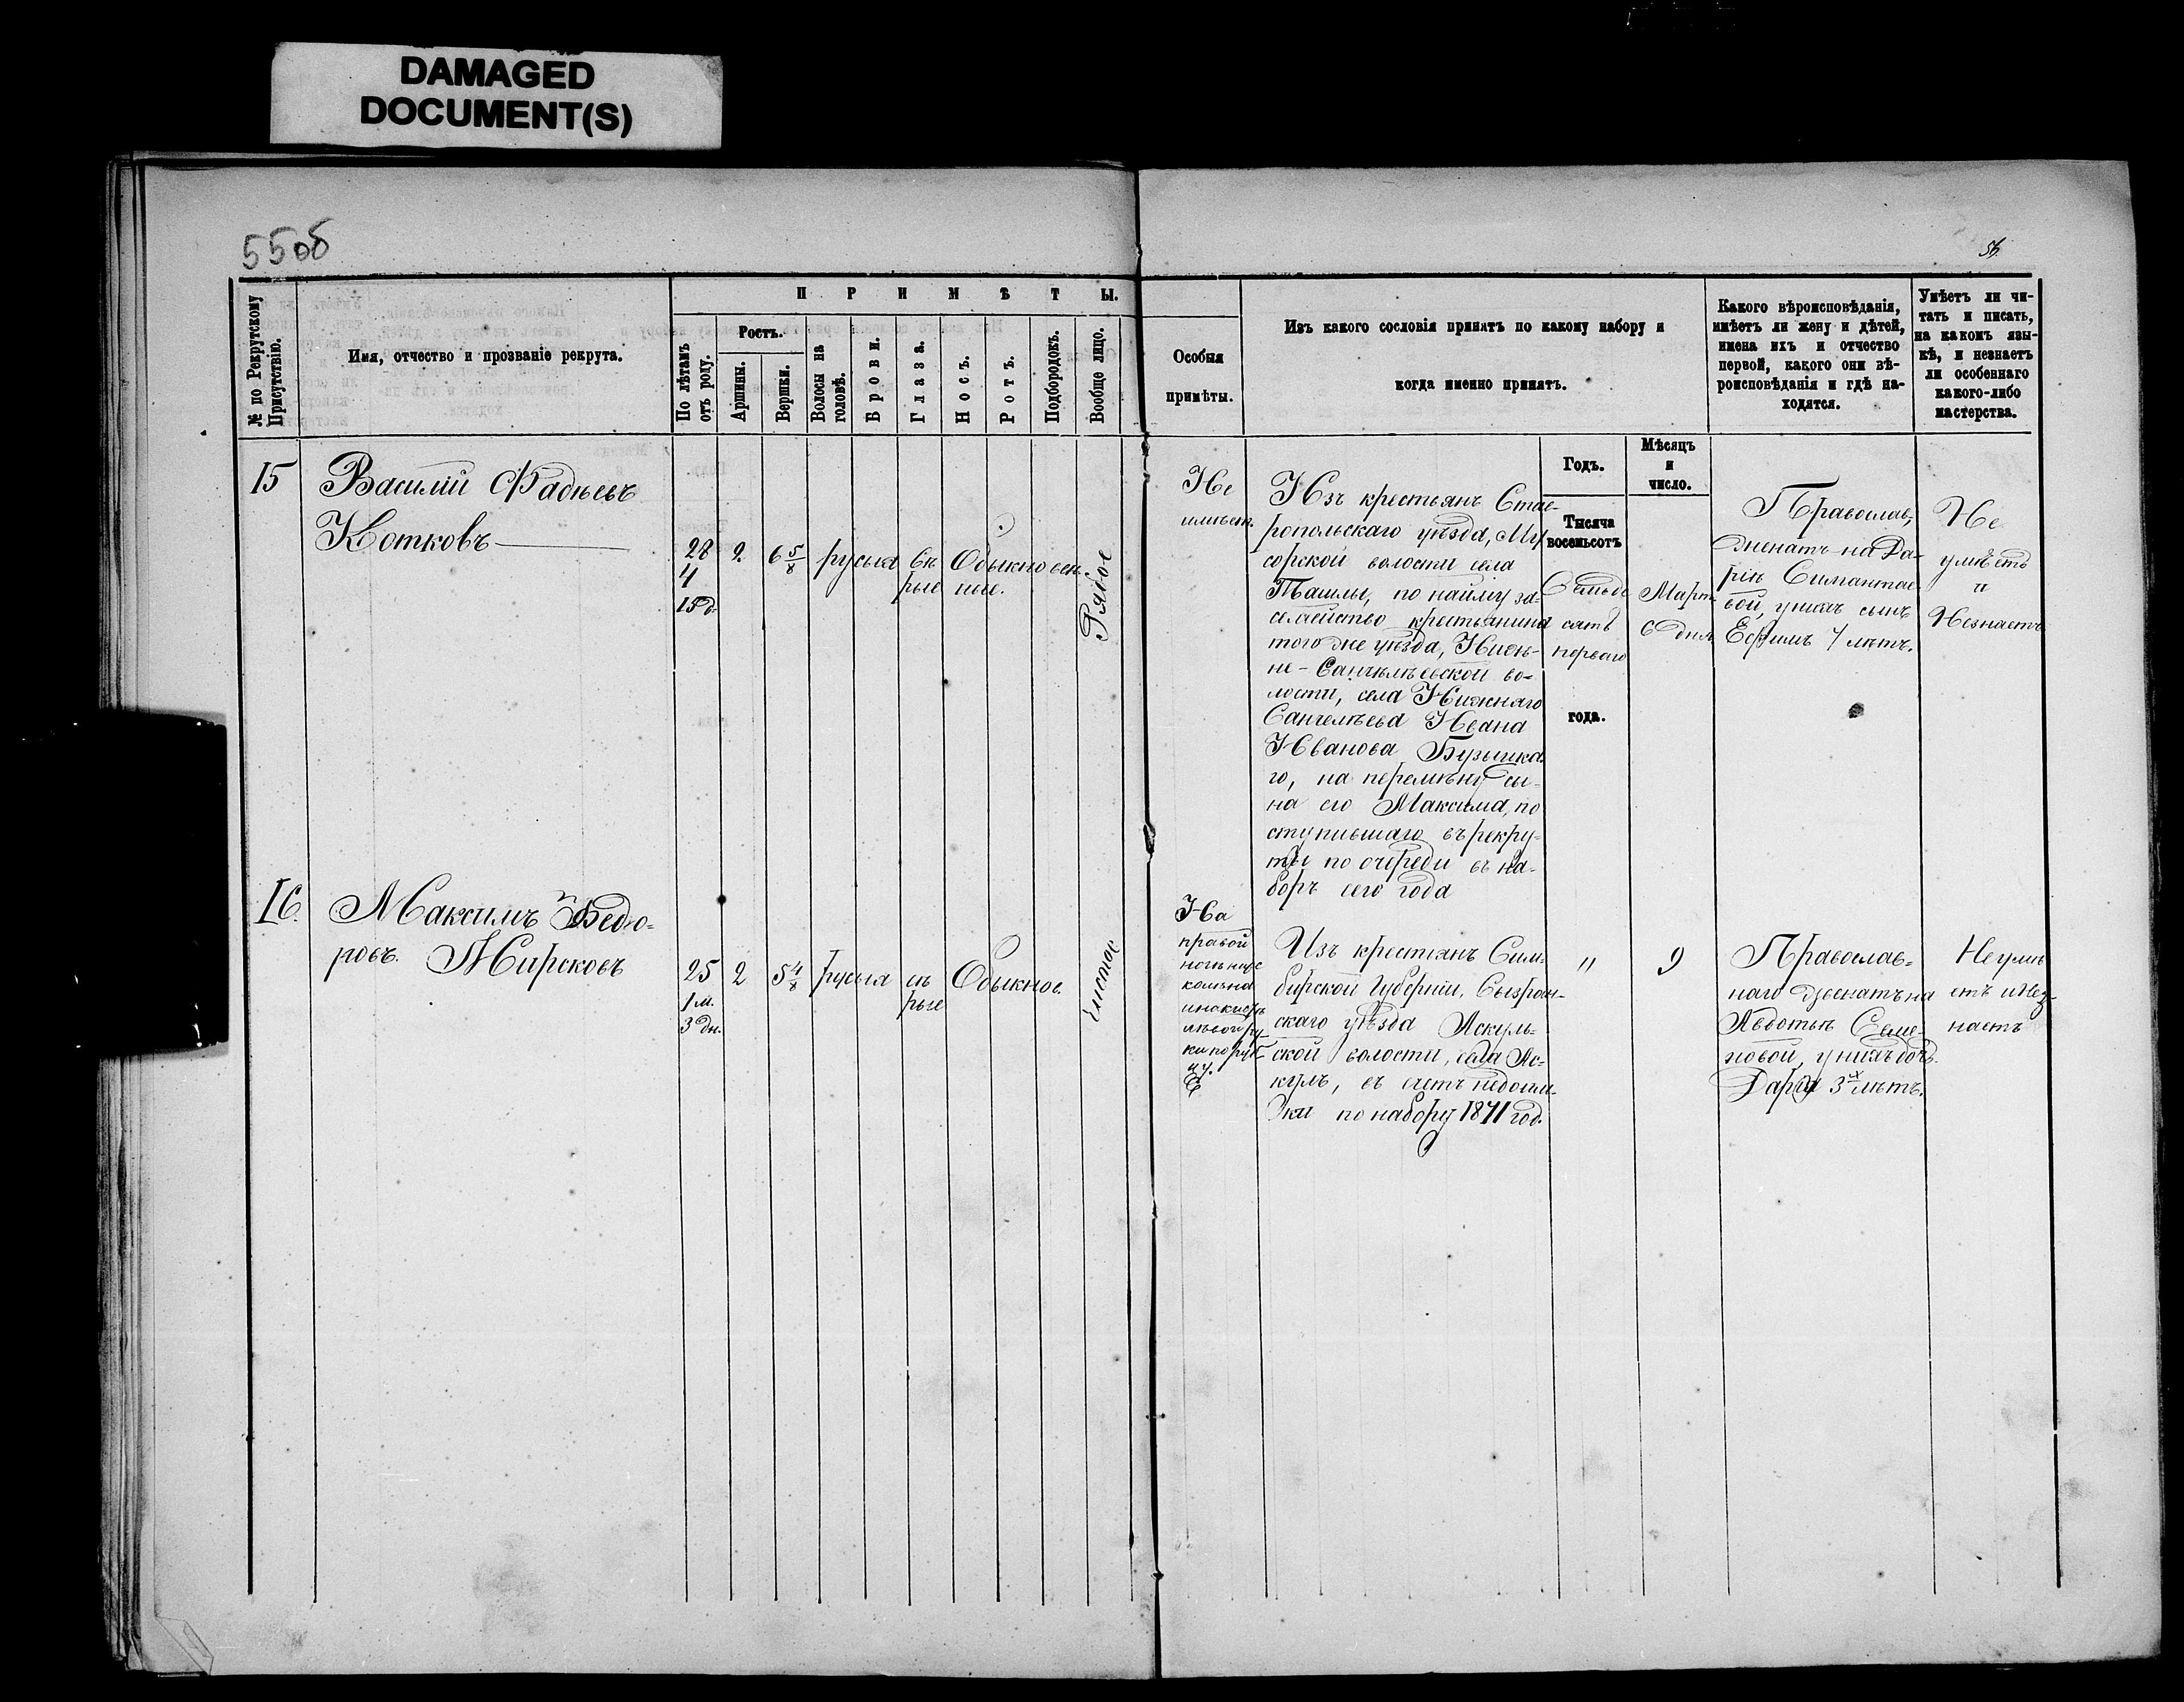 DAMAGED
DOCUMENT(S)
55об
56
№ по Рекрутскому
Присутствію.
Имя, отчество и прозваніе рекрута.
ПРИМѢТЫ.
По лѣтамъ
отъ роду.
Ростъ.
Аршины.
Вершки.
Волосы на
головѣ.
Брови.
Глаза.
Носъ.
Ротъ.
Подбородокъ.
Вообще лицо.
Особыя
примѣты.
Изъ какого сословія принятъ по какому набору и
когда именно принятъ.
Какого вѣроисповѣданія,
имѣетъ ли жену и дѣтей,
имена ихъ и отчество
первой, какого они вѣ-
роисповѣданія и гдѣ на-
ходятся.
Умѣетъ ли чи-
тать и писать,
на какомъ язы-
кѣ, и незнаетъ
ли особеннаго
какого-либо
мастерства.
Годъ.
Мѣсяцъ
и
число.
15
Василій Фадѣевъ
Котковъ
28
4
15 д.
2.
6 5/8
русыя
Сѣ
рые
Обыкновен
ные.
Рябое
Не
имѣет.
Изъ крестьянъ Став-
ропольскаго уѣзда, Му
сорской волости села
Ташлы, по найму за-
семейство крестьянина
того же уѣзда, Ниж-
не-Санчелѣевской во-
лости, села Нижняго
Санчелѣева Ивана
Иванова Бузыцка
го, на перемѣну сы-
на его Максима, по
ступившаго въ рекру-
ты по очереди въ на-
боръ сего года
Тысяча
восемьсотъ
Семьде
сятъ
перваго
года.
Март.
6 дня
Православ,
женатъ на Да-
рьѣ Симантае
вой, у нихъ сынъ
Ефимъ 7 лѣтъ.
Не
умѣетъ
и
Незнаетъ
16.
Максимъ Ѳедо-
ровъ. Мирсковъ
25
1 м.
3 дн.
2
5 4/8
Русыя
сѣ
рые
Обыкнов.
Чистое
На
правой
ногѣ ниже
колѣна
и на кисть
лѣвой ру-
ки по руб-
цу.
Изъ крестьянъ Сим-
бирской Губерніи, Сызран-
скаго уѣзда Аскуль-
ской волости, села Ас-
кулъ, въ счетъ недоим-
ки по набору 1871 год.
"
9
Православ-
наго женатъ на
Авдотьѣ Семе-
новой, у нихъ дочь
Дарья 3х лѣтъ.
Не умѣ
етъ и Нез-
наетъ